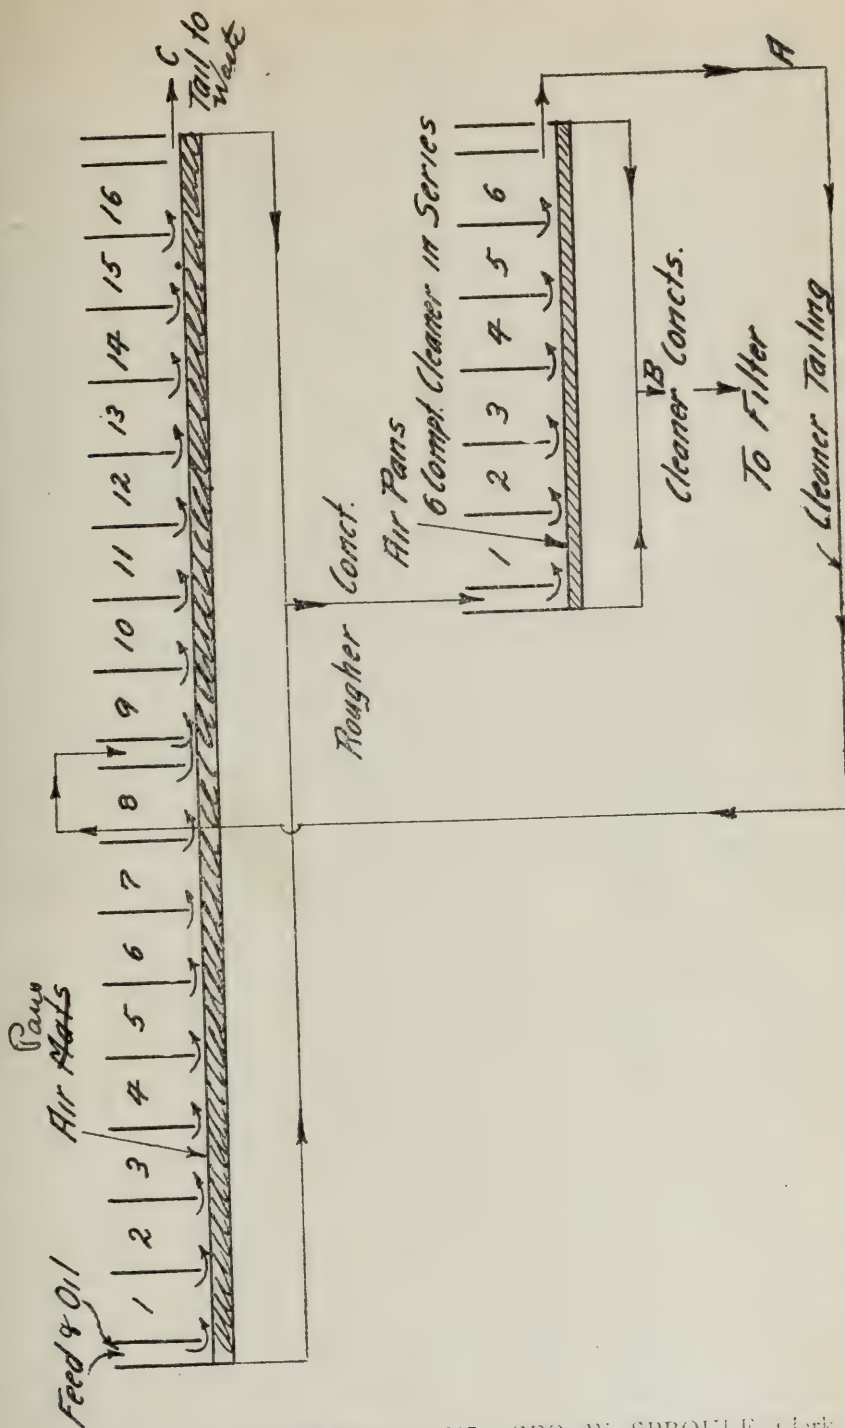 Feed & Oil
Pans
Air Mats
1 2 3 4 5 6 7 8 9 10 11 12 13 14 15 16
C
Tail to
Waste
Rougher Conct.
Air Pans
6 Compt. Cleaner in Series
1 2 3 4 5 6
B
Cleaner Concts.
To Filter
A
Cleaner Tailing
SPROULE